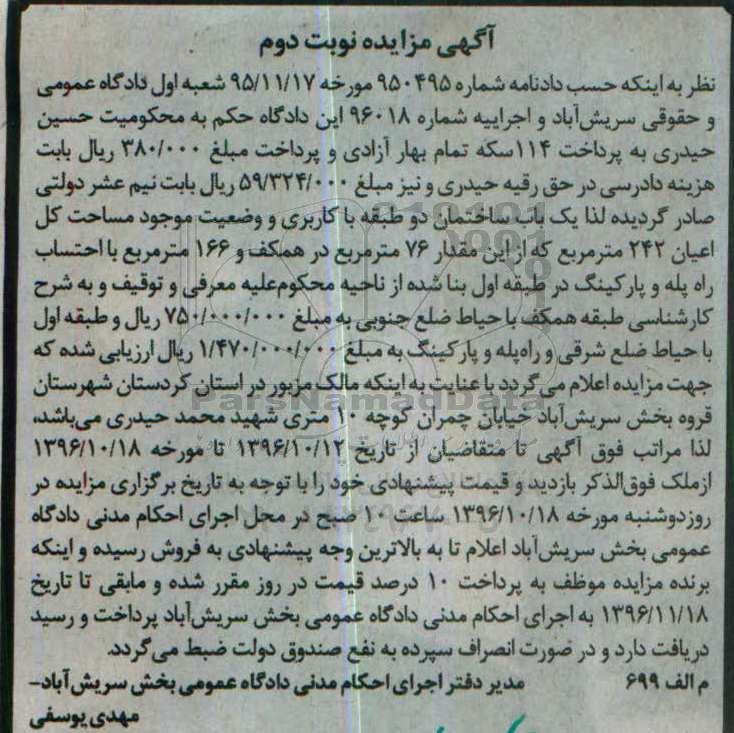 آگهی مزایده نوبت دوم
نظر به اینکه حسب دادنامه شماره ۹۵۰۴۹۵ مورخه ۹۵/۱۱/۱۷ شعبه اول دادگاه عمومی
و حقوقی سریش‌آباد و اجراییه شماره ۹۶۰۱۸ این دادگاه حکم به محکومیت حسین
حیدری به پرداخت ۱۱۴سکه تمام بهار آزادی و پرداخت مبلغ ۳۸۰/۰۰۰ ریال بابت
هزینه دادرسی در حق رقیه حیدری و نیز مبلغ ۵۹/۳۲۴/۰۰۰ ریال بابت نیم عشر دولتی
صادر گردیده لذا یک باب ساختمان دو طبقه با کاربری و وضعیت موجود مساحت کل
اعیان ۲۴۲ مترمربع که از این مقدار ۷۶ مترمربع در همکف و ۱۶۶ مترمربع با احتساب
راه پله و پارکینگ در طبقه اول بنا شده از ناحیه محکوم‌علیه معرفی و توقیف و به شرح
کارشناسی طبقه همکف با حیاط ضلع جنوبی به مبلغ ۷۵۰/۰۰۰/۰۰۰ ریال و طبقه اول
با حیاط ضلع شرقی و راه‌پله و پارکینگ به مبلغ ۱/۴۷۰/۰۰۰/۰۰۰ ریال ارزیابی شده که
جهت مزایده اعلام می‌گردد با عنایت به اینکه مالک مزبور در استان کردستان شهرستان
قروه بخش سریش‌آباد خیابان چمران کوچه ۱۰ متری شهید محمد حیدری می‌باشد،
لذا مراتب فوق آگهی تا متقاضیان از تاریخ ۱۳۹۶/۱۰/۱۲ تا مورخه ۱۳۹۶/۱۰/۱۸
ازملک فوق‌الذکر بازدید و قیمت پیشنهادی خود را با توجه به تاریخ برگزاری مزایده در
روزدوشنبه مورخه ۱۳۹۶/۱۰/۱۸ ساعت ۱۰ صبح در محل اجرای احکام مدنی دادگاه
عمومی بخش سریش‌آباد اعلام تا به بالاترین وجه پیشنهادی به فروش رسیده و اینکه
برنده مزایده موظف به پرداخت ۱۰ درصد قیمت در روز مقرر شده و مابقی تا تاریخ
۱۳۹۶/۱۱/۱۸ به اجرای احکام مدنی دادگاه عمومی بخش سریش‌آباد پرداخت و رسید
دریافت دارد و در صورت انصراف سپرده به نفع صندوق دولت ضبط می‌گردد.
م الف ۶۹۹ مدیر دفتر اجرای احکام مدنی دادگاه عمومی بخش سریش‌آباد-
مهدی یوسفی
ParsNamadData